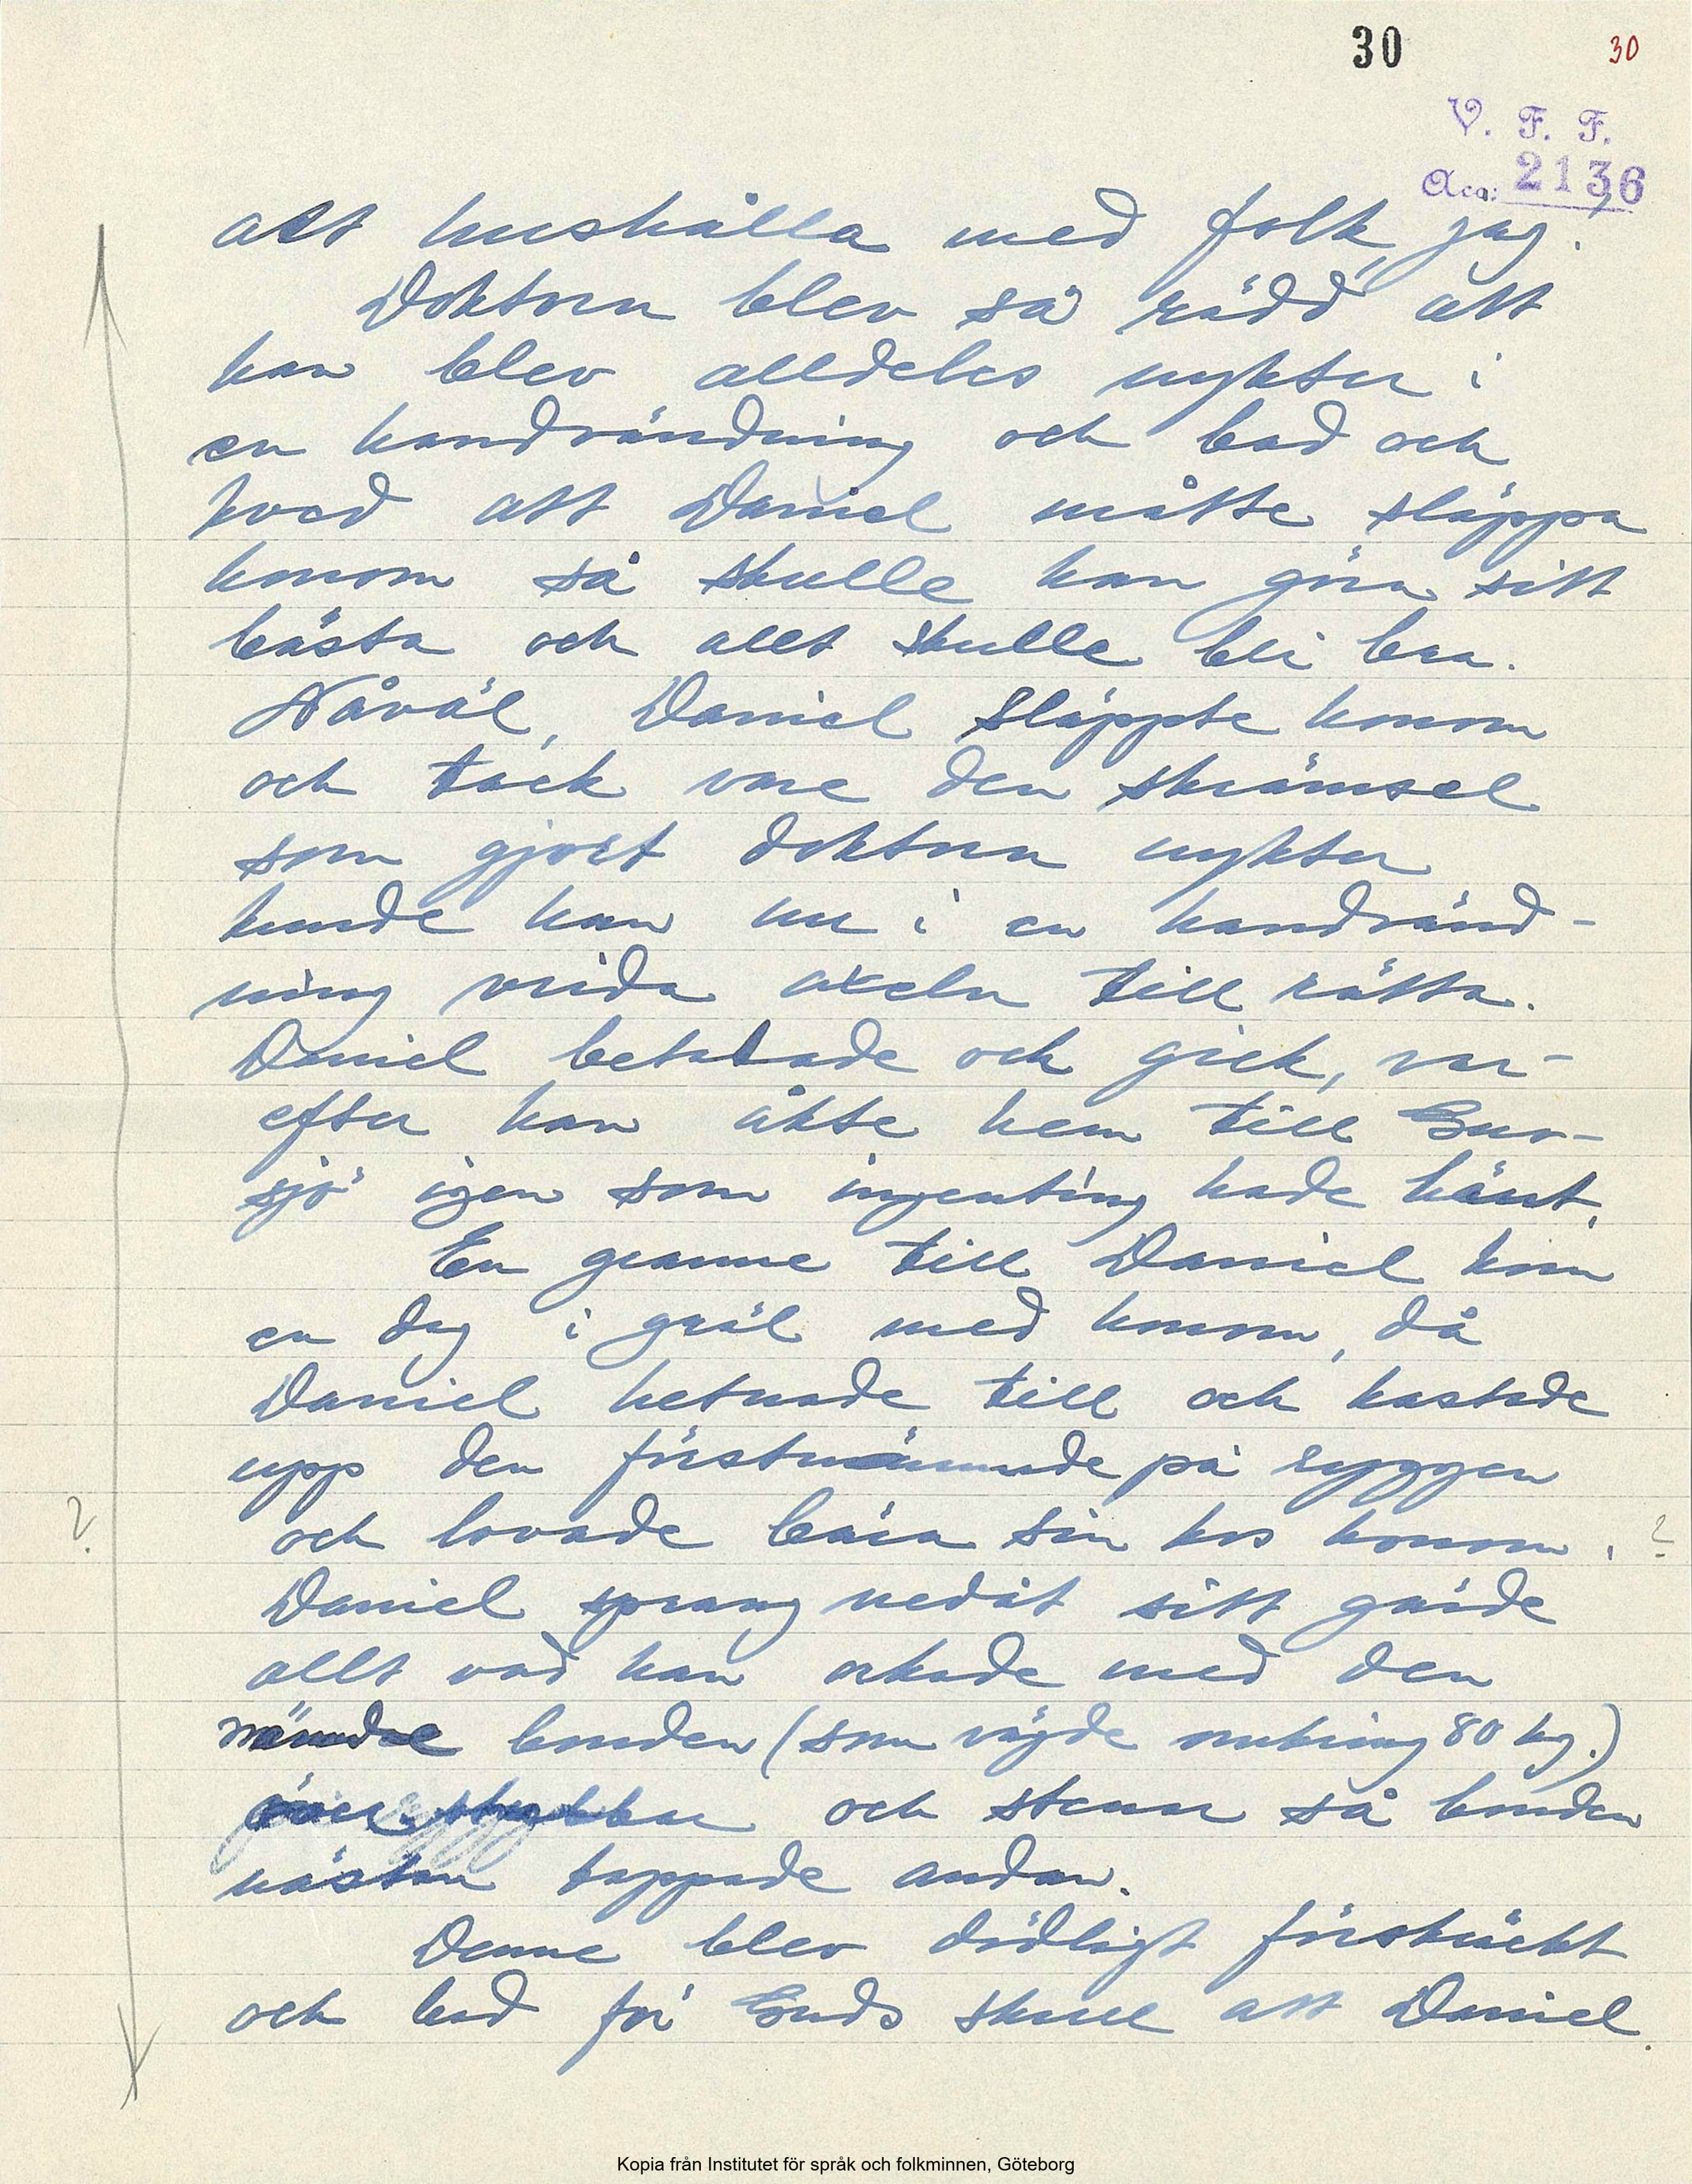 30 30
V. F. F.
Acc: 2136
att hushålla med folk, jag."
Doktorn blev så rädd att
han blev alldeles nykter i
en handvändning och bad och
kved att Daniel måtte släppa
honom så skulle han göra sitt
bästa och allt skulle bli bra.
Nåväl, Daniel släppte honom
och tack vare den skrämsel
som gjort doktorn nykter
kunde han nu i en handvänd-
ning vrida axeln till rätta.
Daniel betalade och gick, var-
efter han åkte hem till Guv-
sjö igen som ingenting hade hänt.
En granne till Daniel kom
en dag i gräl med honom, då
Daniel hetnade till och kastade
upp den förstnämnde på ryggen
? och lovade bära sin kos honom. ?
Daniel sprang nedåt sitt gärde
allt vad han orkade med den
nämnde bonden (som vägde omkring 80 kg.)
över stubbar och stenar så bonden
nästan tappade andan.
Denne blev dödligt förskräckt
och bad för Guds skull att Daniel
Kopia från Institutet för språk och folkminnen, Göteborg